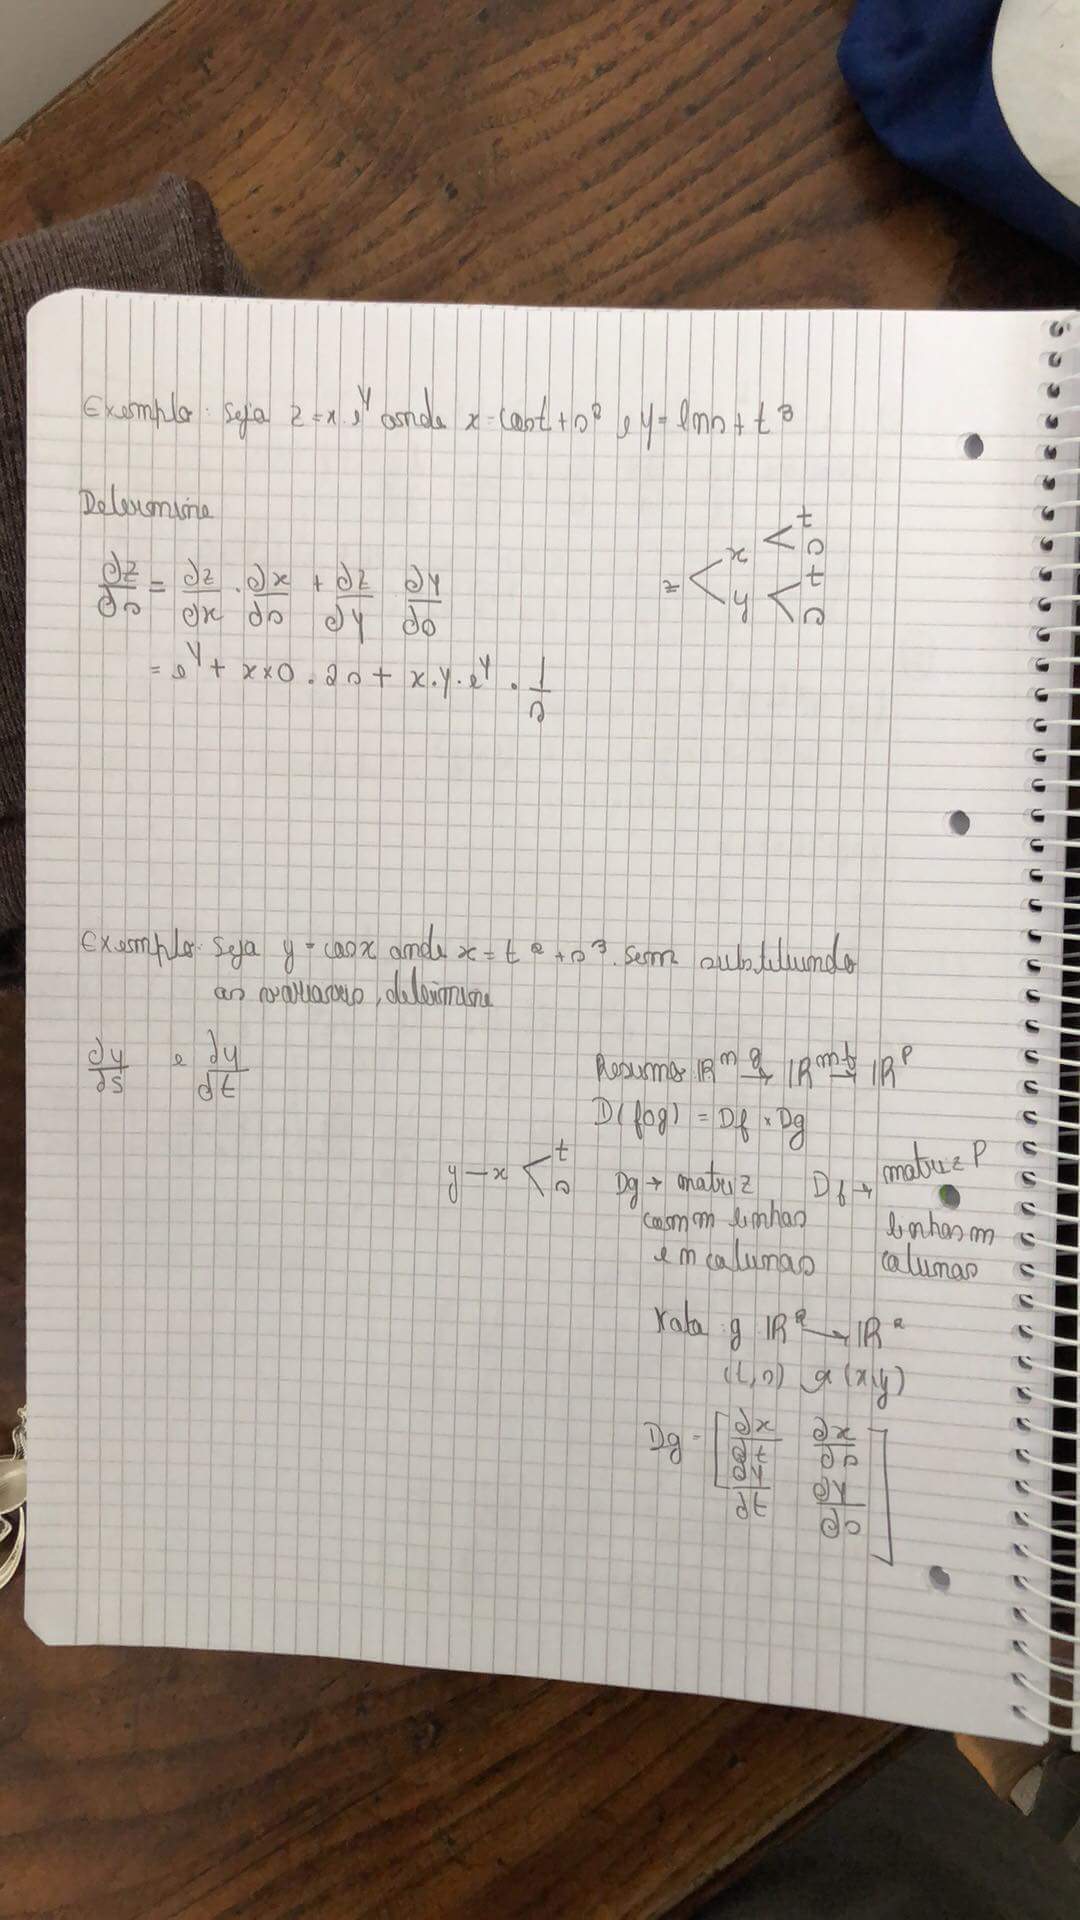 Exemplo: Seja z = x.e^y onde x = cost + s² e y = lns + t³
Determine
∂z/∂s = ∂z/∂x . ∂x/∂s + ∂z/∂y ∂y/∂s
z < x y < t s < t s
= e^y + x×0 . 2s + x.y.e^y . 1/s
Exemplo: Seja y = cosx onde x = t² + s³. Sem substituindo
as variaveis, determine
∂y/∂s e ∂y/∂t
y — x < t s
Resumo IR^n g→ IR^m f→ IR^p
D(fog) = Df × Dg
Dg → matriz
com m linhas
e n colunas
Df → matriz P
linhas m
colunas
Nota g IR² → IR²
(t,s) → (x,y)
Dg = [∂x/∂t ∂x/∂s
∂y/∂t ∂y/∂s]